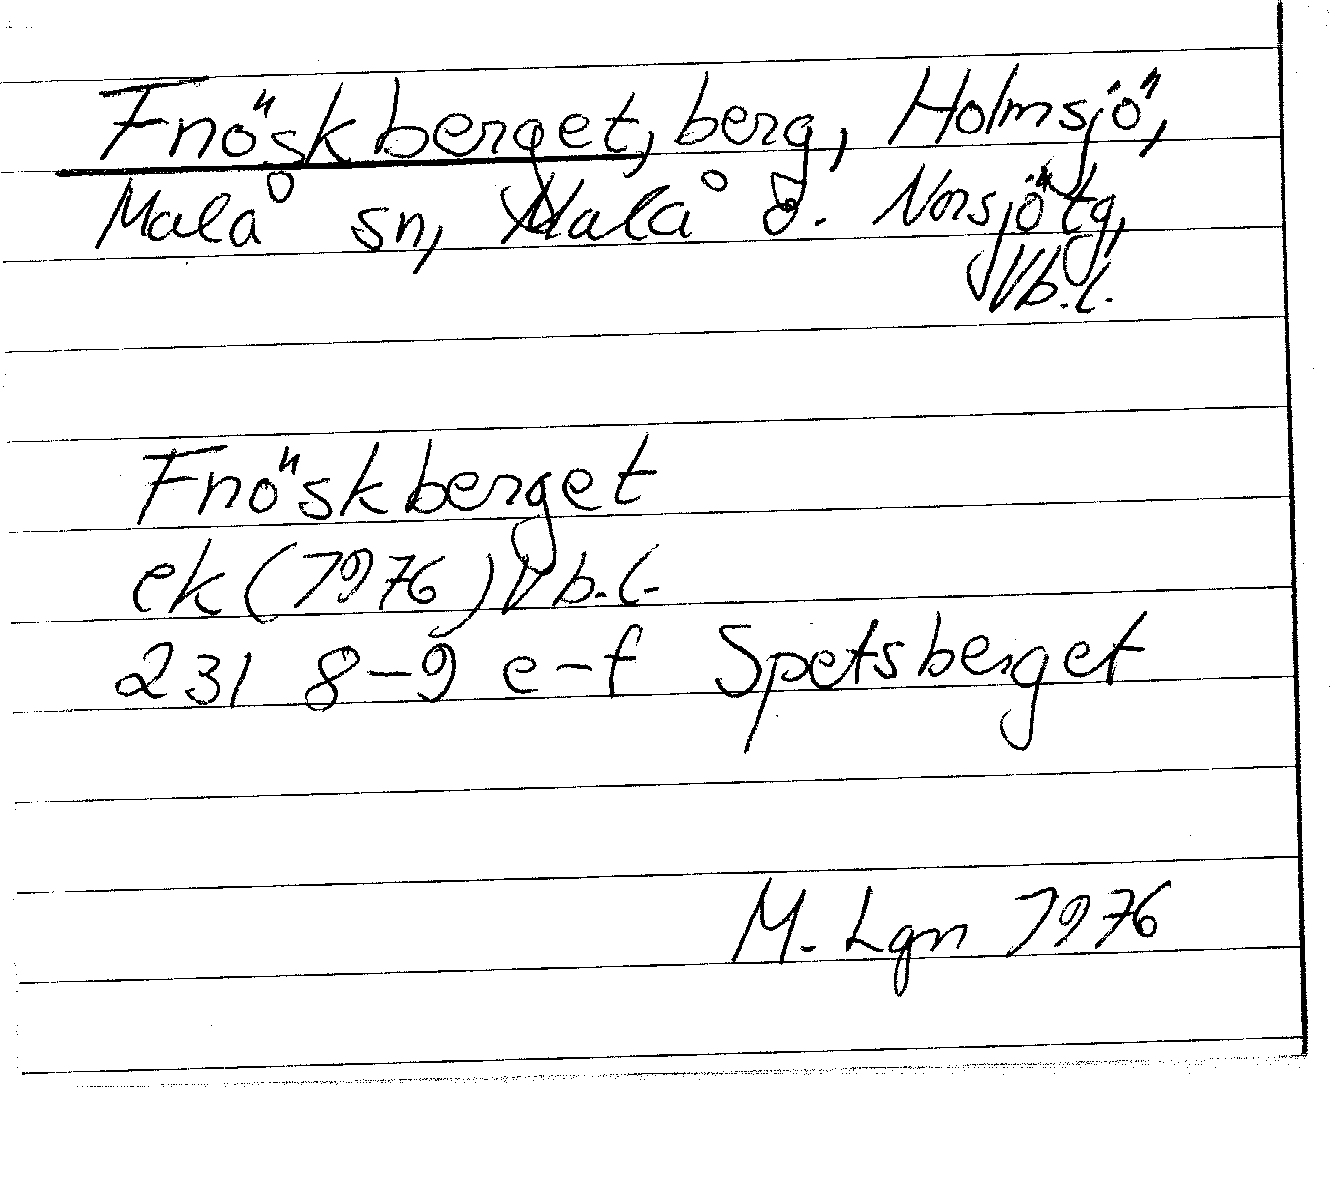 Fnöskberget, berg, Holmsjö,
Malå sn, Malå o. Norsjö tg,
Vb.l.
Fnöskberget
ek (1976) Vb.l.
23I 8-9 e-f Spetsberget
M. Lgn 1976